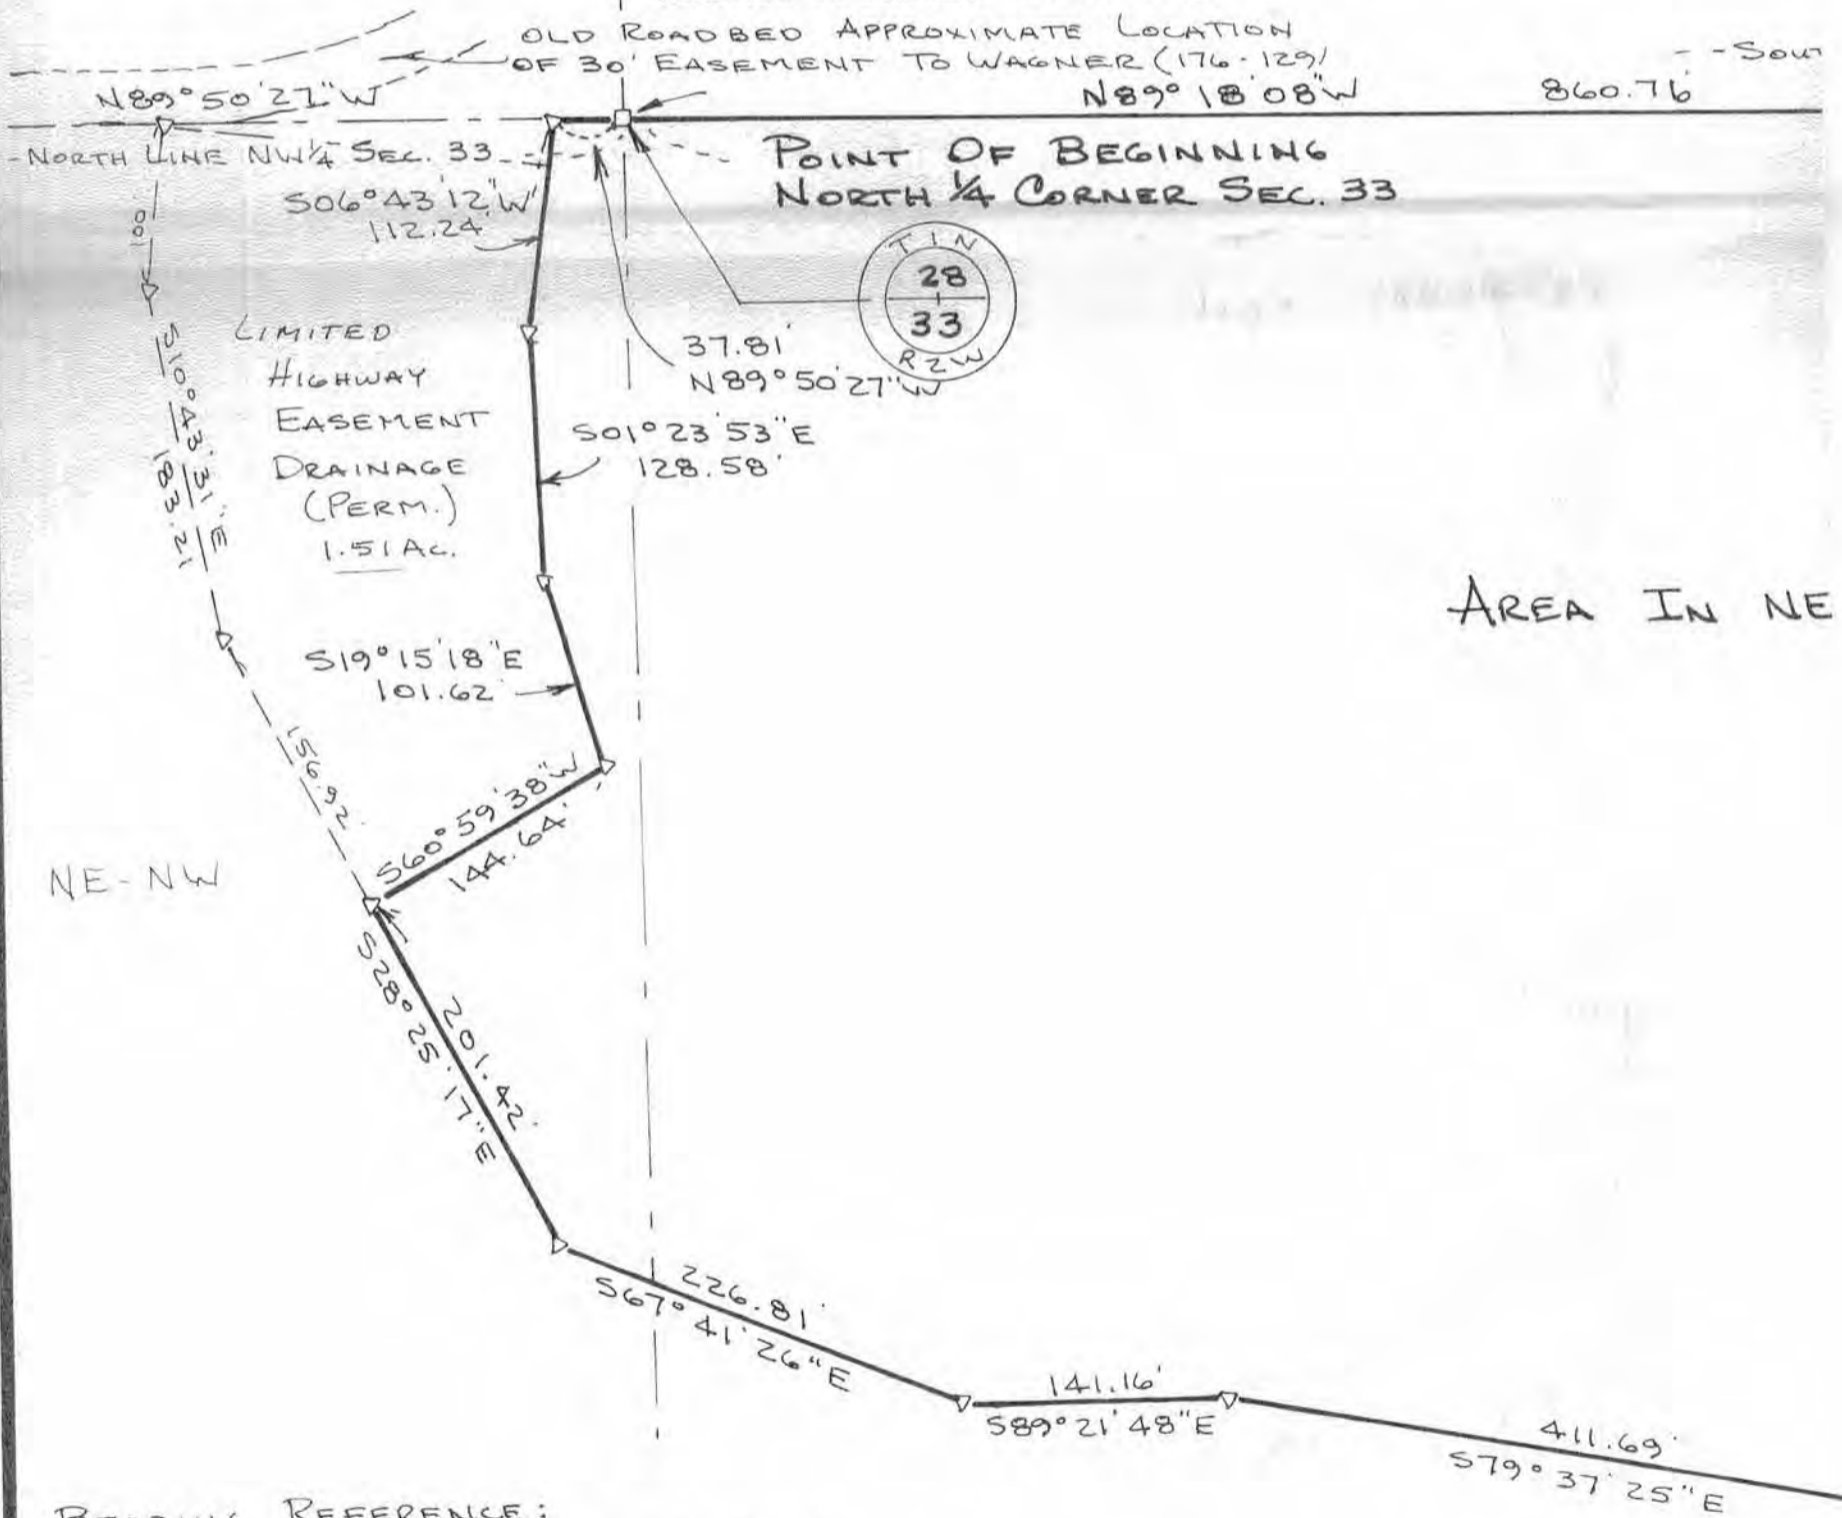 OLD ROADBED APPROXIMATE LOCATION
OF 30' EASEMENT TO WAGNER (176-129)
--SOUT
N89°50'27"W
N89°18'08"W
860.76'
NORTH LINE NW¼ SEC. 33
POINT OF BEGINNING
NORTH ¼ CORNER SEC. 33
S06°43'12"W
112.24'
100'
T1N
28
33
R2W
37.81'
N89°50'27"W
LIMITED
HIGHWAY
EASEMENT
DRAINAGE
(PERM.)
1.51 AC.
S10°43'31"E
183.21
S01°23'53"E
128.58'
AREA IN NE
S19°15'18"E
101.62'
156.92'
S60°59'38"W
144.64'
NE-NW
201.42'
S28°25'17"E
226.81'
S67°41'26"E
141.16'
S89°21'48"E
411.69'
S79°37'25"E
REFERENCE: